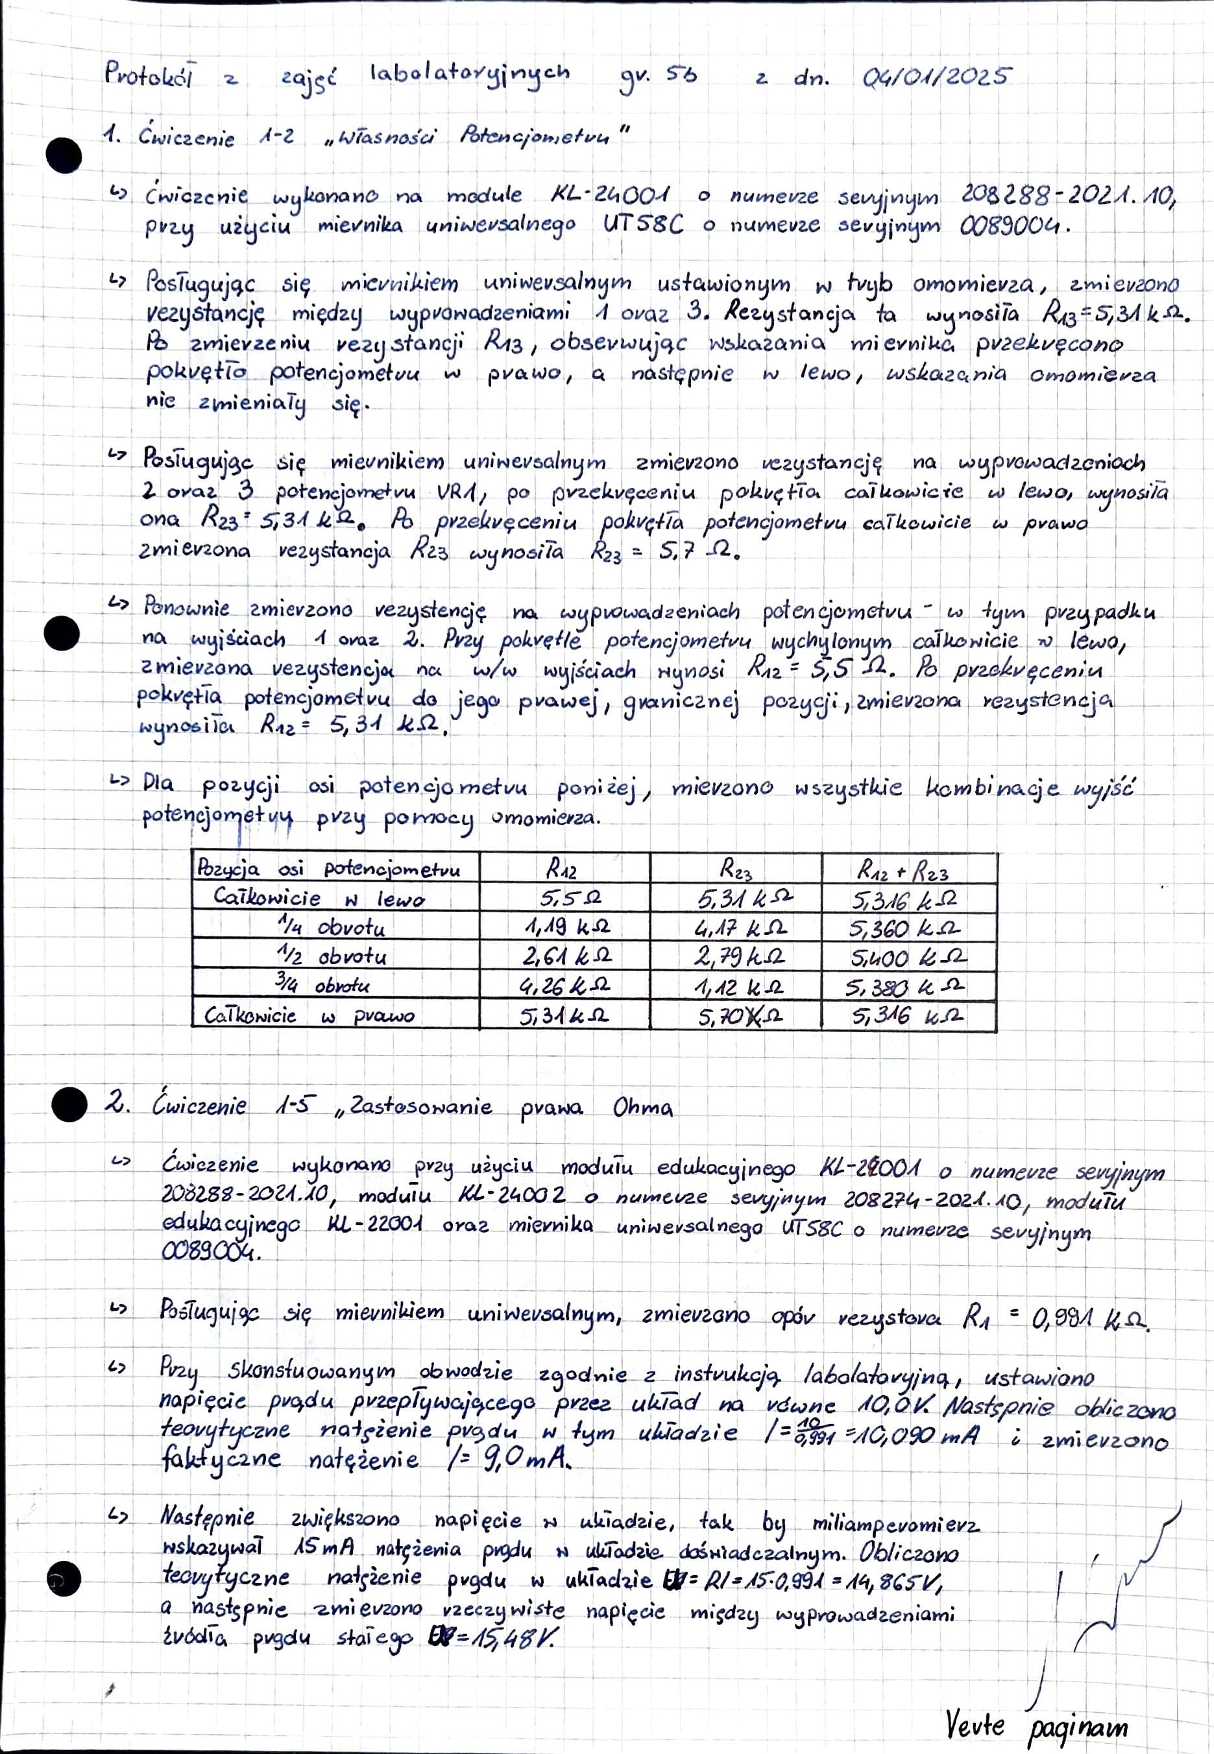 Protokół z zajęć labolatoryjnych gr. 5b z dn. 04/01/2025
1. Ćwiczenie 1-2 „Własności Potencjometru"
↳ Ćwiczenie wykonano na module KL-24001 o numerze seryjnym 208288-2021.10,
przy użyciu miernika uniwersalnego UT58C o numerze seryjnym 0089004.
↳ Posługując się miernikiem uniwersalnym ustawionym w tryb omomierza, zmierzono
rezystancję między wyprowadzeniami 1 oraz 3. Rezystancja ta wynosiła R13=5,31 kΩ.
Po zmierzeniu rezystancji R13, obserwując wskazania miernika przekręcono
pokrętło potencjometru w prawo, a następnie w lewo, wskazania omomierza
nie zmieniały się.
↳ Posługując się miernikiem uniwersalnym zmierzono rezystancję na wyprowadzeniach
2 oraz 3 potencjometru VR1, po przekręceniu pokrętła całkowicie w lewo, wynosiła
ona R23 = 5,31 kΩ. Po przekręceniu pokrętła potencjometru całkowicie w prawo
zmierzona rezystancja R23 wynosiła R23 = 5,7 Ω.
↳ Ponownie zmierzono rezystencję na wyprowadzeniach potencjometru - w tym przypadku
na wyjściach 1 oraz 2. Przy pokrętle potencjometru wychylonym całkowicie w lewo,
zmierzona rezystencja na w/w wyjściach wynosi R12 = 5,5 Ω. Po przekręceniu
pokrętła potencjometru do jego prawej, granicznej pozycji, zmierzona rezystencja
wynosiła R12 = 5,31 kΩ.
↳ Dla pozycji osi potencjometru poniżej, mierzono wszystkie kombinacje wyjść
potencjometru przy pomocy omomierza.
Pozycja osi potencjometru R12 R23 R12 + R23
Całkowicie w lewo 5,5 Ω 5,31 kΩ 5,316 kΩ
1/4 obrotu 1,19 kΩ 4,17 kΩ 5,360 kΩ
1/2 obrotu 2,61 kΩ 2,79 kΩ 5,400 kΩ
3/4 obrotu 4,26 kΩ 1,12 kΩ 5,380 kΩ
Całkowicie w prawo 5,31 kΩ 5,70 Ω 5,316 kΩ
2. Ćwiczenie 1-5 „Zastosowanie prawa Ohma
↳ Ćwiczenie wykonano przy użyciu modułu edukacyjnego KL-22001 o numerze seryjnym
208288-2021.10, modułu KL-24002 o numerze seryjnym 208274-2021.10, modułu
edukacyjnego KL-22001 oraz miernika uniwersalnego UT58C o numerze seryjnym
0089004.
↳ Posługując się miernikiem uniwersalnym, zmierzono opór rezystora R1 = 0,991 kΩ.
↳ Przy skonstuowanym obwodzie zgodnie z instrukcją labolatoryjną, ustawiono
napięcie prądu przepływającego przez układ na równe 10,0V. Następnie obliczono
teorytyczne natężenie prądu w tym układzie I = 10/0,991 = 10,090 mA i zmierzono
faktyczne natężenie I = 9,0 mA.
↳ Następnie zwiększono napięcie w układzie, tak by miliamperomierz
wskazywał 15 mA natężenia prądu w układzie doświadczalnym. Obliczono
teorytyczne natężenie prądu w układzie U = RI = 15·0,991 = 14,865V,
a następnie zmierzono rzeczywiste napięcie między wyprowadzeniami
źródła prądu stałego U = 15,48V.
Verte paginam